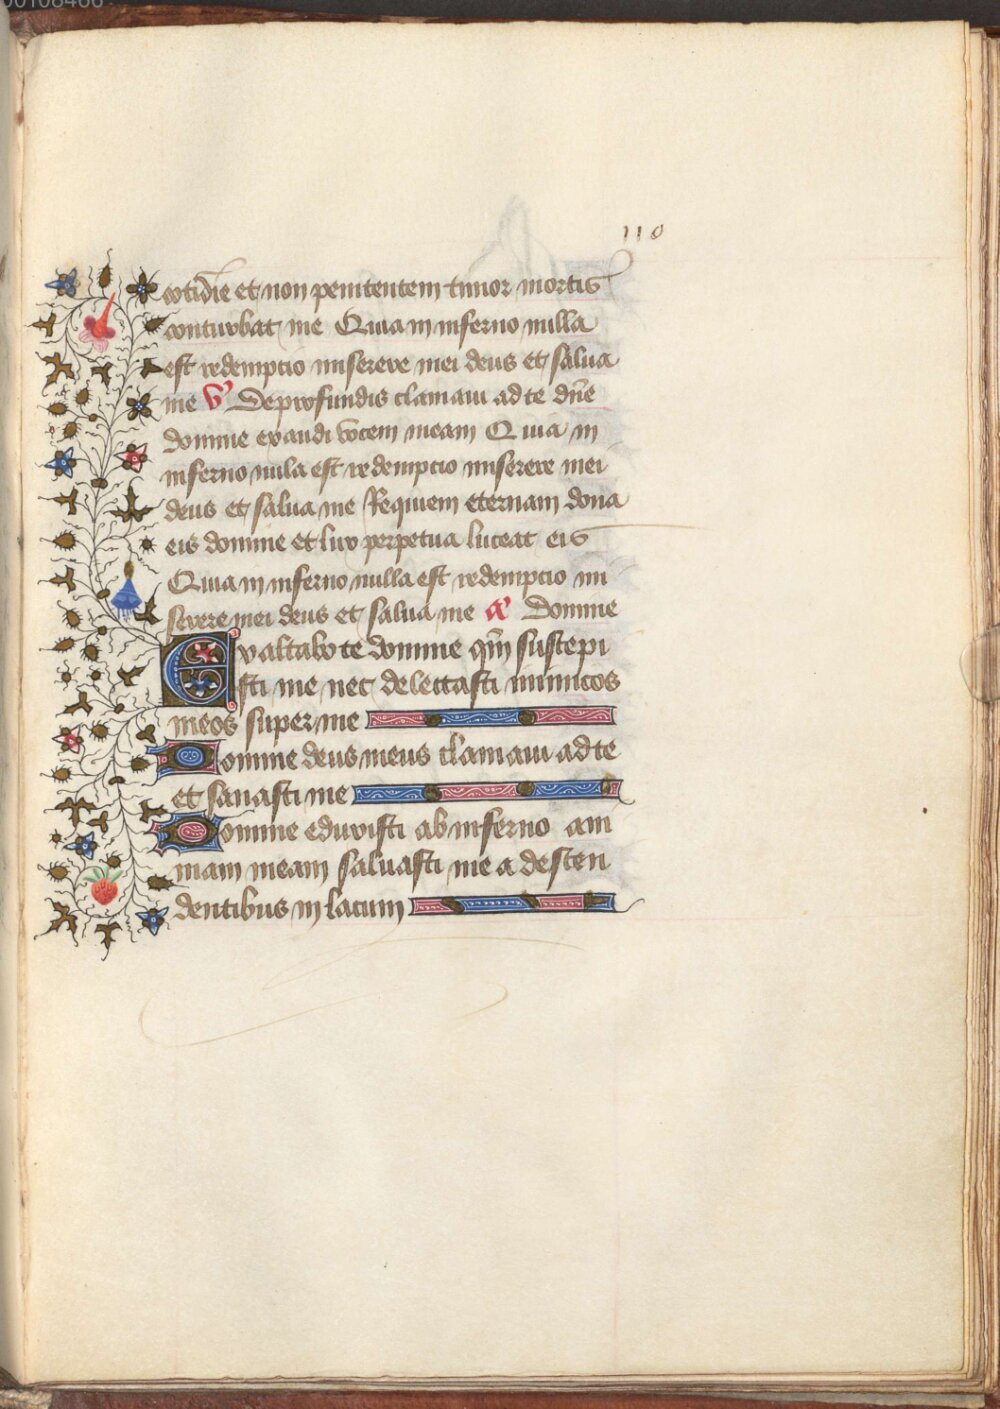 00108466
110
cotidie et non penitentem timor mortis
conturbat me Quia in inferno nulla
est redemptio miserere mei deus et salua
me V Deprofundis clamaui ad te dñe
domine exaudi vocem meam Quia in
inferno nula est redemptio miserere mei
deus et salua me Requiem eternam dona
eis domine et lux perpetua luceat eis
Quia in inferno nulla est redemptio mi
serere mei deus et salua me Domine
Exaltabo te domine qm̄ suscepi
sti me nec delectasti inimicos
meos super me
Domine deus meus clamaui ad te
et sanasti me
Domine eduxisti ab inferno ani
mam meam saluasti me a descen
dentibus in lacum